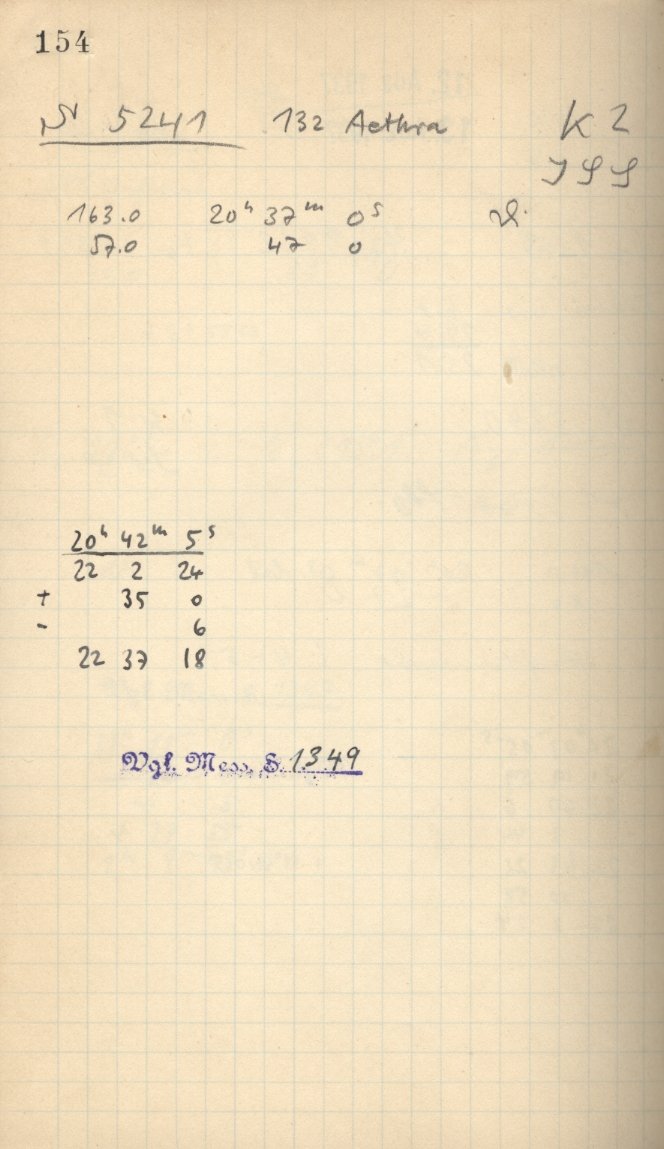 154
N 5241 132 Aethra K 2
163.0 20h 37m 0s
57.0 47 0
20h 42m 5s
22 2 24
+ 35 0
- 6
22 37 18
Vgl. Mess. S. 1349